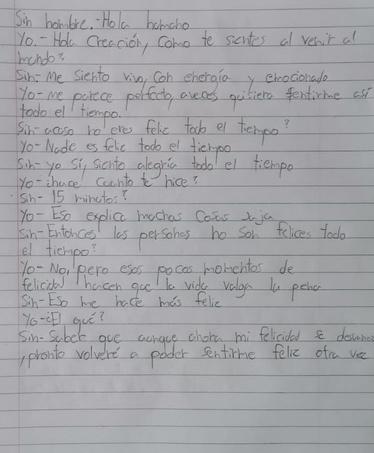 Sin hombre.-Hola humano
Yo.- Hola Creación, Como te sientes al venir al
mundo?
Sin- Me Siento vivo, Con energía y emocionado
Yo- me parece perfecto, aveces quisiera sentirme así
todo el tiempo.
Sin- acaso no eres feliz todo el tiempo?
Yo- Nade es feliz todo el tiempo
Sin- yo Sí, siento alegría todo el tiempo
Yo- ¿hace Cuanto te hice?
Sin- 15 minutos?
Yo- Eso explica muchas Cosas Jaja
Sin- Entonces las personas no son felices todo
el tiempo?
Yo- No, pero esos pocos momentos de
felicidad hacen que la vida valga la pena
Sin- Eso me hace más feliz
Yo- ¿El qué?
Sin- Saber que aunque ahora mi felicidad se
, pronto volveré a poder sentirme feliz otra vez